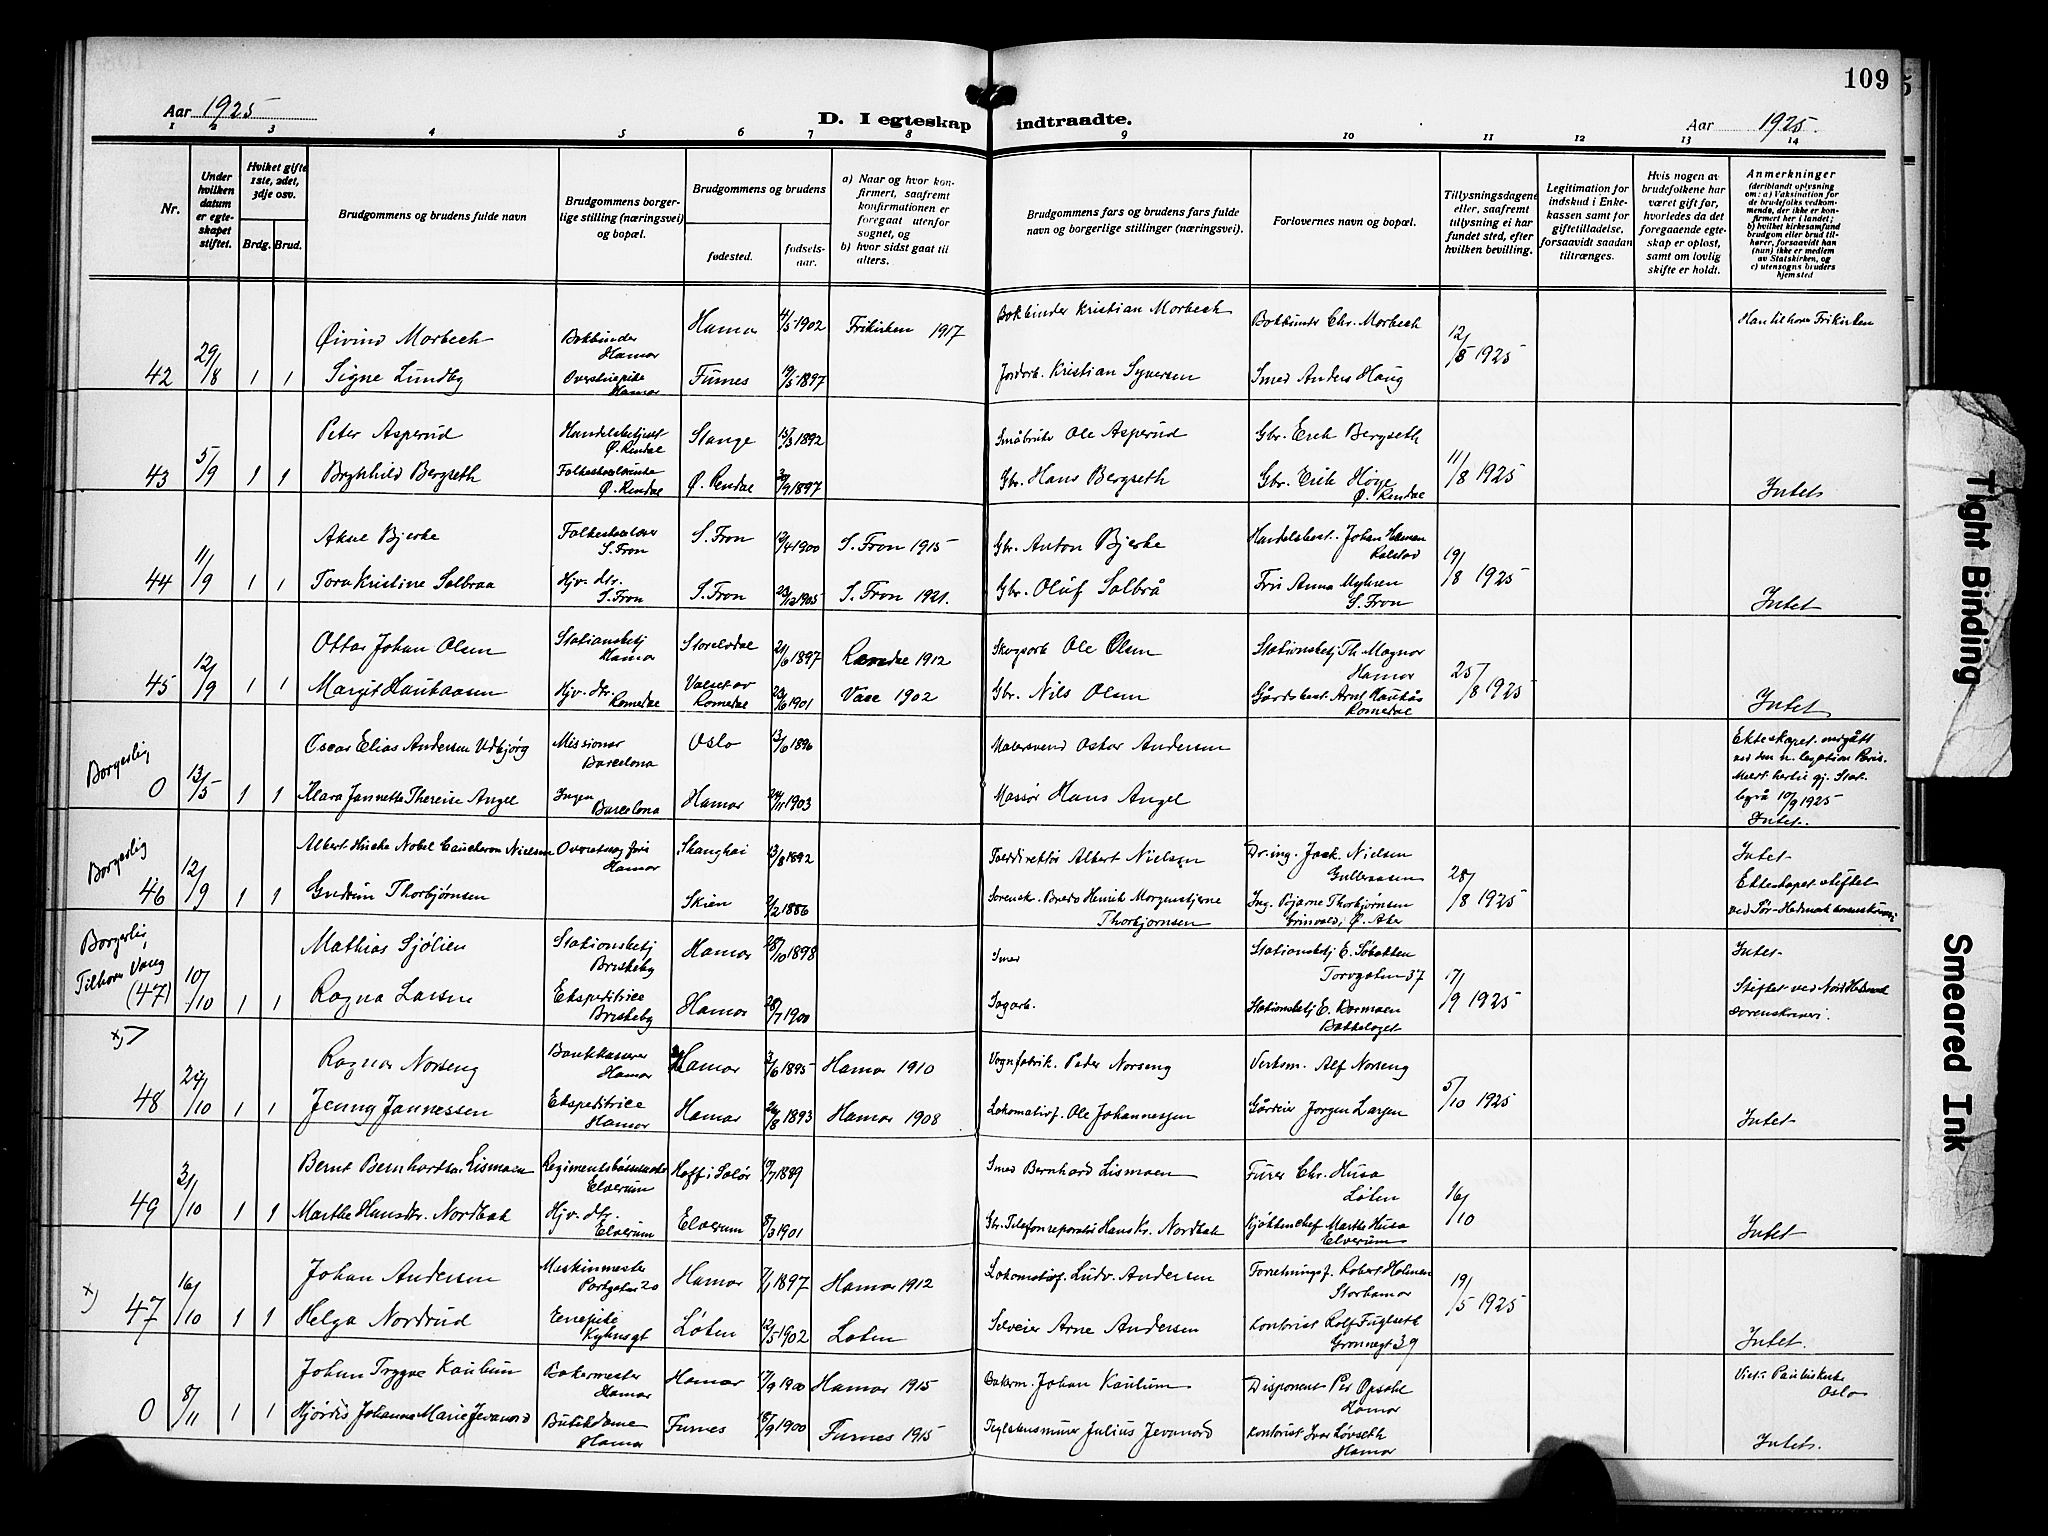 109
Aar 1925
D. I egteskap indtraadte.
Aar 1925.
1 2 3 4 5 6 7 8 9 10 11 12 13 14
Nr.
Under hvilken datum er egteskapet stiftet.
Hvilket gifte 1ste, 2det, 3dje osv.
Brdg. Brud.
Brudgommens og brudens fulde navn
Brudgommens borgerlige stilling (næringsvei) og bopæl.
Brudgommens og brudens
fødested.
fødselsaar.
a) Naar og hvor konfirmert, saafremt konfirmationen er foregaat utenfor sognet, og
b) hvor sidst gaat til alters.
Brudgommens fars og brudens fars fulde navn og borgerlige stillinger (næringsvei).
Forlovernes navn og bopæl.
Tillysningsdagene eller, saafremt tillysning ei har fundet sted, efter hvilken bevilling.
Legitimation for indskud i Enkekassen samt for giftetilladelse, forsaavidt saadan tiltrænges.
Hvis nogen av brudefolkene har været gift før, hvorledes da det foregaaende egteskap er opløst, samt om lovlig skifte er holdt.
Anmerkninger (deriblandt oplysning om: a) Vaksination for de brudefolks vedkommende, der ikke er konfirmert her i landet; b) hvilket kirkesamfund brudgom eller brud tilhører, forsaavidt han (hun) ikke er medlem av Statskirken, og c) utensogns bruders hjemsted
42 29/8 1 1
Øivind Morbech Bokbinder Hamar Hamar 4/5 1902 Frikirken 1917 Bokbinder Kristian Morbech Bokbinder Chr. Morbech 12/8 1925 Han tilhører Frikirken
Signe Lundby Hamar Furnes 19/5 1897 Jordarb. Kristian Syversen Smed Anders Haug
43 5/9 1 1
Peter Asperud Handelsbetjent Ø. Rendal Stange 13/3 1892 Småbruker Ole Asperud Gbr. Erik Bergseth 11/8 1925
Brynhild Bergseth Ø. Rendal Ø. Rendal 1897 Gbr. Hans Bergseth Gbr. Erik Høye Ø. Rendal Intet
44 11/9 1 1
Bjerke Folkeskolelærer S. Fron S. Fron 1900 S. Fron 1915 Gbr. Anton Bjerke Handelsbest. Johan 19/8 1925
Tora Kristine Solbraa Hjv. dtr. S. Fron S. Fron 1905 S. Fron 1921. Gbr. Oluf Solbrå Fru Anna Myhren S. Fron Intet
45 12/9 1 1
Ottar Johan Olsen Stationsbetj Hamar Storelvdal 1897 1912 Skogsarb Ole Olsen Stationsbetj Th. Magnor Hamar 25/8 1925
Margit Haukaasen Hjv. dtr. Romedal Romedal 1901 1902 Gbr. Nils Olsen Gårdsbest. Arnt Haukås Romedal Intet
Borgerlig
0 13/5 1 1
Oscar Elias Andersen Udbjørg Missionær Barcelona Oslo 13/6 1896 Malersvend Oskar Andersen Ekteskapet inngått ved den n. legation Paris. 10/9 1925 Intet.
Klara Jannette Therese Angel Ingen Barcelona Hamar 24/11 1903 Massør Hans Angel
Borgerlig
46 12/9 1 1
Albert Nobel Nielsen Hamar Shanghai 13/8 1892 Tolddirektør Albert Nielsen Dr. ing. Jack. Nielsen 28/8 1925 Intet Ekteskapet stiftet
Gudrun Thorbjørnsen Skien 2/2 1886 Henrik Morgenstjerne Thorbjørnsen Ing. Bjarne Thorbjørnsen Ø. Aker ved Sør-Hedmark
Borgerlig
Tilhører Vang
(47) 10/10 1 1
Mathias Sjølien Stationsbetj Briskeby Hamar 28/10 1898 Smed Stationsbetj E. Torvgaten 37 17/9 1925 Intet
Ragna Larsen Ekspeditrice Briskeby Hamar 28/7 1900 Sagarb. Stationsbetj E. Stiftet ved Nord Hedmark sorenskriveri.
x)
48 24/10 1 1
Ragnar Norseng Bankkasserer Hamar Hamar 3/6 1895 Hamar 1910 Vognfabrik. Peder Norseng Verksm. Alf Norseng 5/10 1925
Jenny Jannessen Ekspeditrice Hamar Hamar 1893 Hamar 1908 Lokomotivf. Ole Johannessen Gårdeier Jørgen Larsen Intet
49 31/10 1 1
Bernt Bernhardsen Lismoen Elverum Hoff i Solør 1889 Smed Bernhard Lismoen Furer Chr. Husa Løten 16/10
Marthe Hansdtr. Nordbak Hjv. dtr. Elverum Elverum 8/3 1901 Gbr. Telefonreparatør Hans Kr. Nordbak Kjøkkenchef Marthe Husa Elverum Intet
x)
47 16/10 1 1
Johan Andersen Maskinmester Parkgaten 20 Hamar 7/1 1897 Hamar 1912 Lokomotivf. Ludv. Andersen Forretningsf. Robert Holmen Storhamar 19/5 1925
Helga Nordrud Løten 12/5 1902 Løten Selveier Arne Andersen Kontorist Rolf Fuglseth Grønnegt 39 Intet
0 8/11 1 1
Johan Trygve Kaulum Bakermester Hamar Hamar 17/9 1900 Hamar 1915 Bakerm. Johan Kaulum Disponent Per Opsahl Hamar Viet i Pauluskirke Oslo
Hjørdis Johanne Marie Jevanord Butikdame Hamar Furnes 18/9 1900 Furnes 1915 Julius Jevanord Kontorist Ivar Løvseth Hamar Intet.
Tight Binding
Smeared Ink